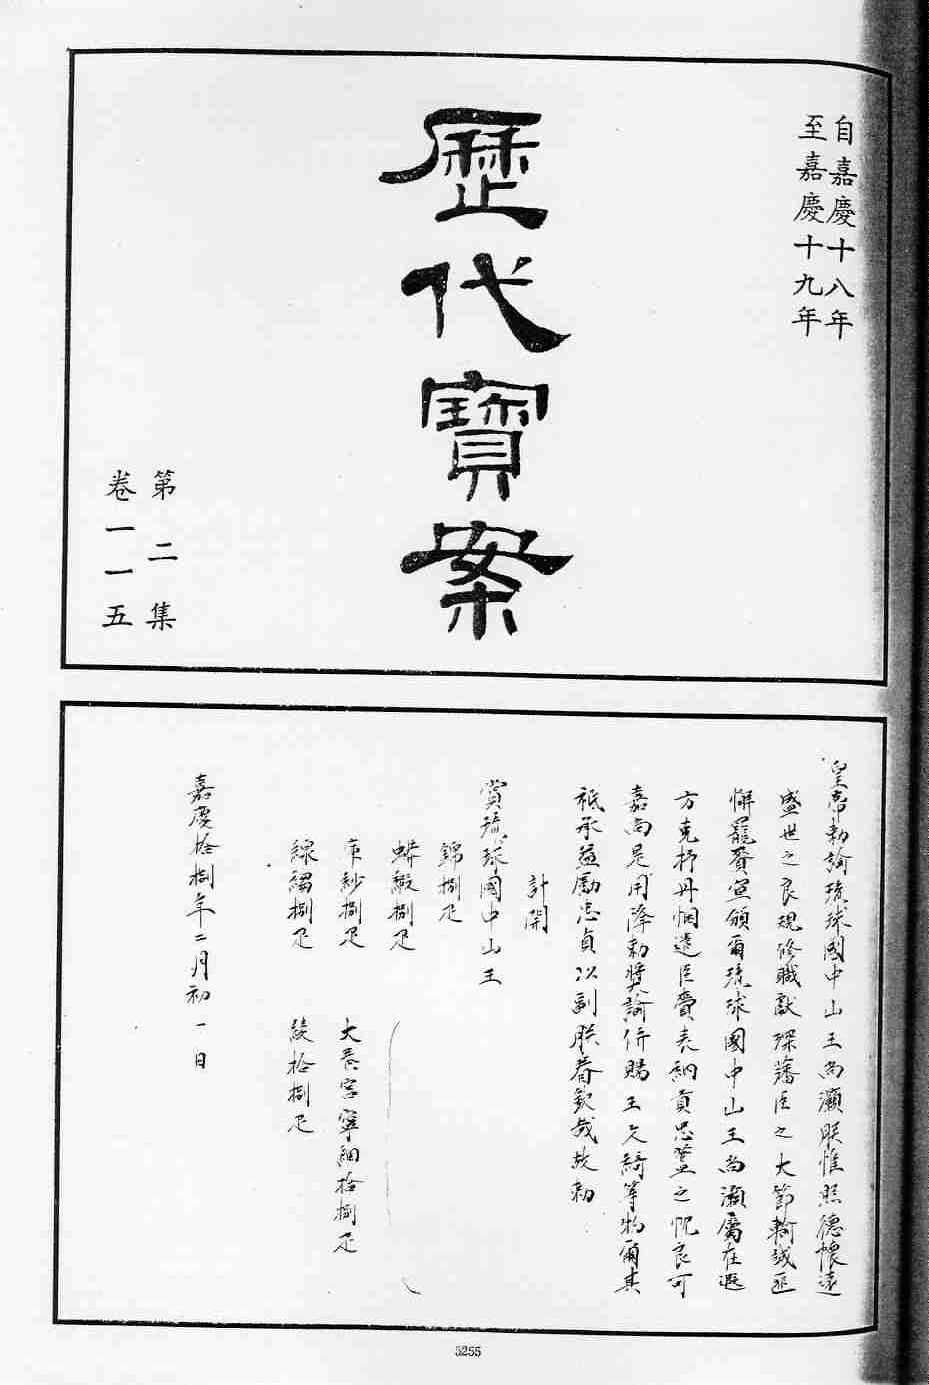 自嘉慶十八年
至嘉慶十九年
歷代寶案
第二集
卷一一五
皇帝勅諭琉球國中山王尚灝朕惟昭德懷遠
盛世之良規修職獻琛藩臣之大節輸誠匪
懈寵賚宣頒爾琉球國中山王尚灝屬在遐
方克抒丹悃遣臣賷表納貢忠藎之忱良可
嘉尚是用降勅奬諭併賜王文綺等物爾其
祗承益勵忠貞以副朕眷欽哉故勅
計開
賞琉球國中山王
錦捌疋
蟒緞捌疋
紗捌疋
大 字 紬拾捌疋
線縐捌疋
綾拾捌疋
嘉慶拾捌年二月初一日
5255